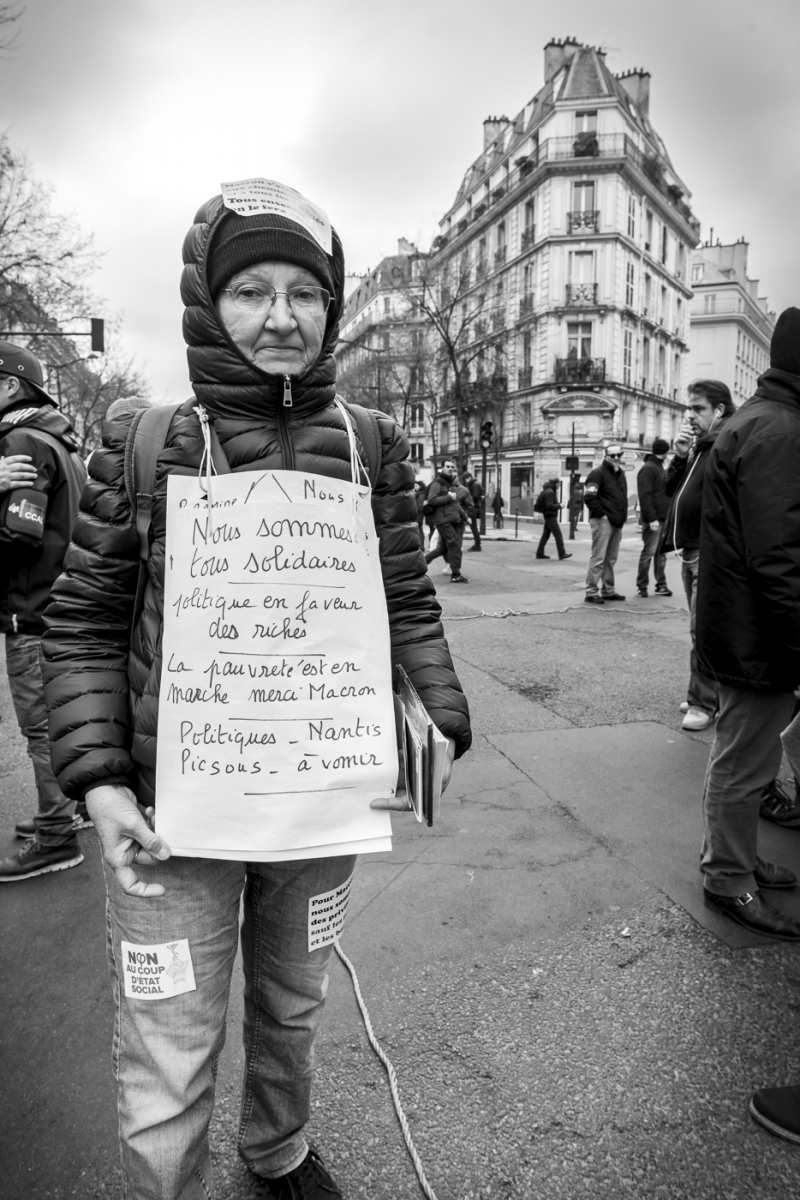 Tous ensemble
on le fera
Nous
Nous sommes
tous solidaires
politique en faveur
des riches
La pauvreté est en
marche merci Macron
Politiques - Nantis
Picsous - à vomir
NON
AU COUP
D'ÉTAT
SOCIAL
Pour
nous
des
sauf
et les
CCA